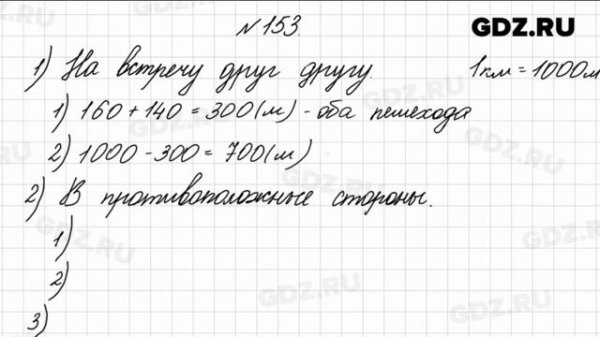 №153.
GDZ.RU
1) На встречу друг другу. 1км = 1000м
1) 160 + 140 = 300(м) - оба пешехода
2) 1000 - 300 = 700(м)
2) В противоположные стороны.
1)
2)
3)